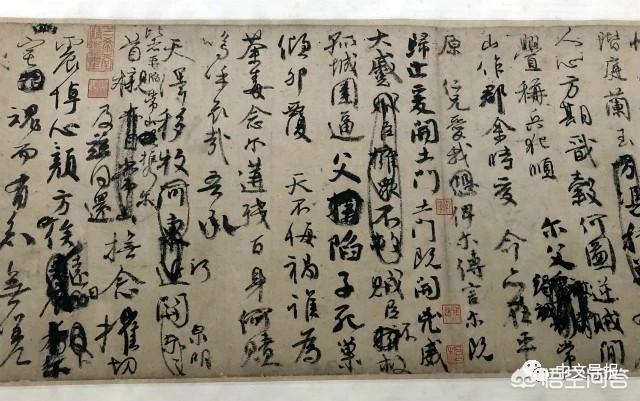 階庭蘭玉
人心方期戩穀何圖逆賊間
釁稱兵犯順 爾父 常
山作郡余時受 命亦在平
原 仁兄愛我恐俾爾傳言爾既
歸止爰開土門土門既開凶威
大蹙賊臣擁眾不救賊臣不救
孤城圍逼父擒陷子死巢
傾卵覆 天不悔禍誰為
荼毒念爾遘殘百身何贖
嗚呼哀哉吾承
天澤移牧河關 泉明
比者再陷常山攜爾
首櫬 及茲同還撫念摧切
震悼心顏方俟遠日
宅魂而有知無嗟
悟空问答